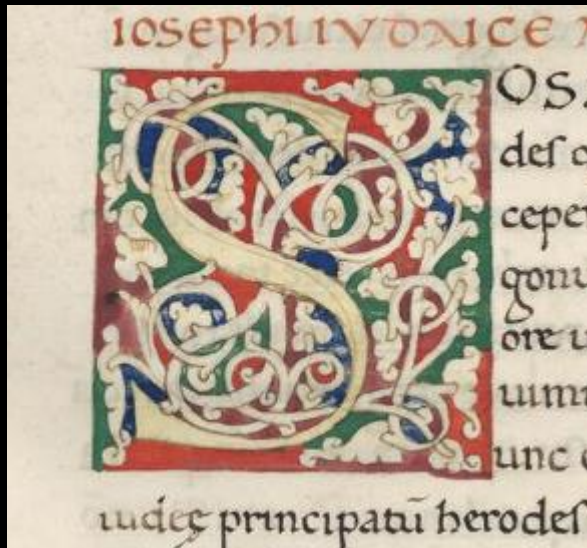 IOSEPHI IVDAICE
S OS
deſ
cepe
gonu
ore u
uım
unc
ıudeę principatū herodeſ